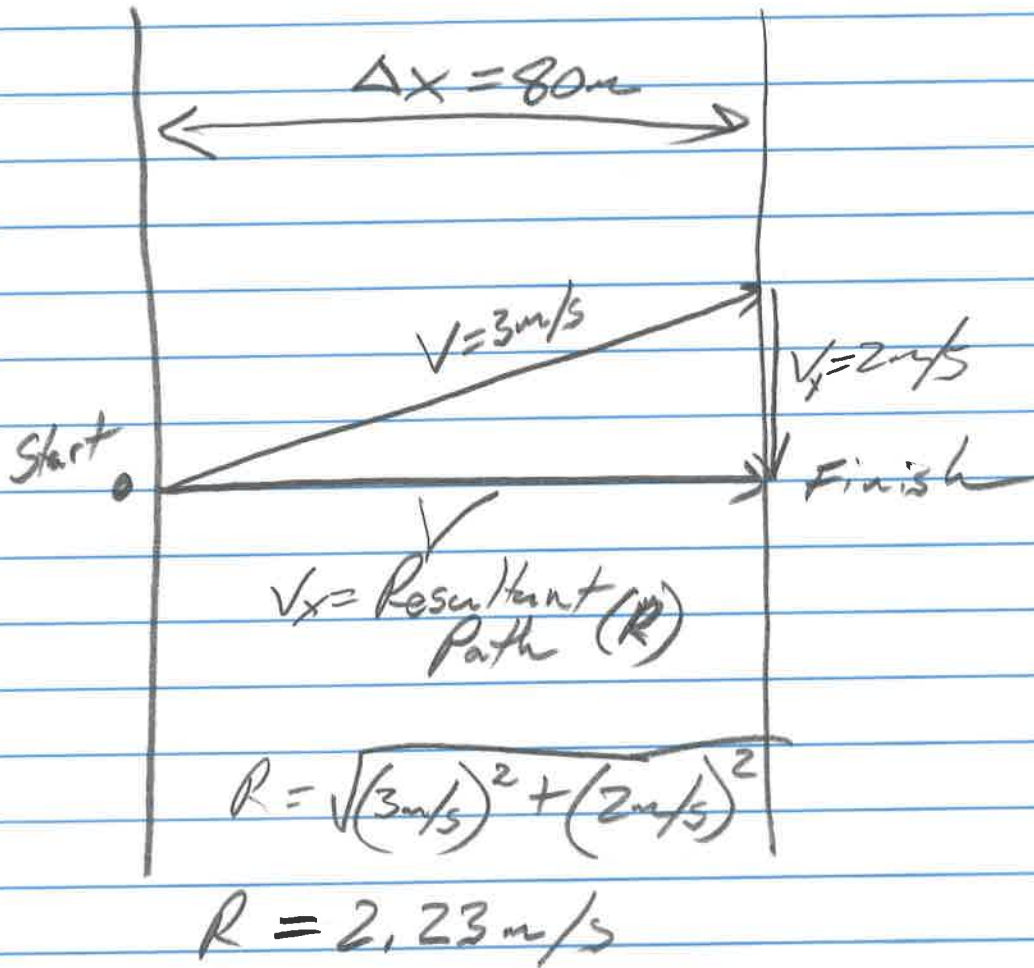 Δx = 80m
V = 3m/s
Vy = 2m/s
Start
Finish
Vx = Resultant
Path (R)
R = √(3m/s)² + (2m/s)²
R = 2.23m/s